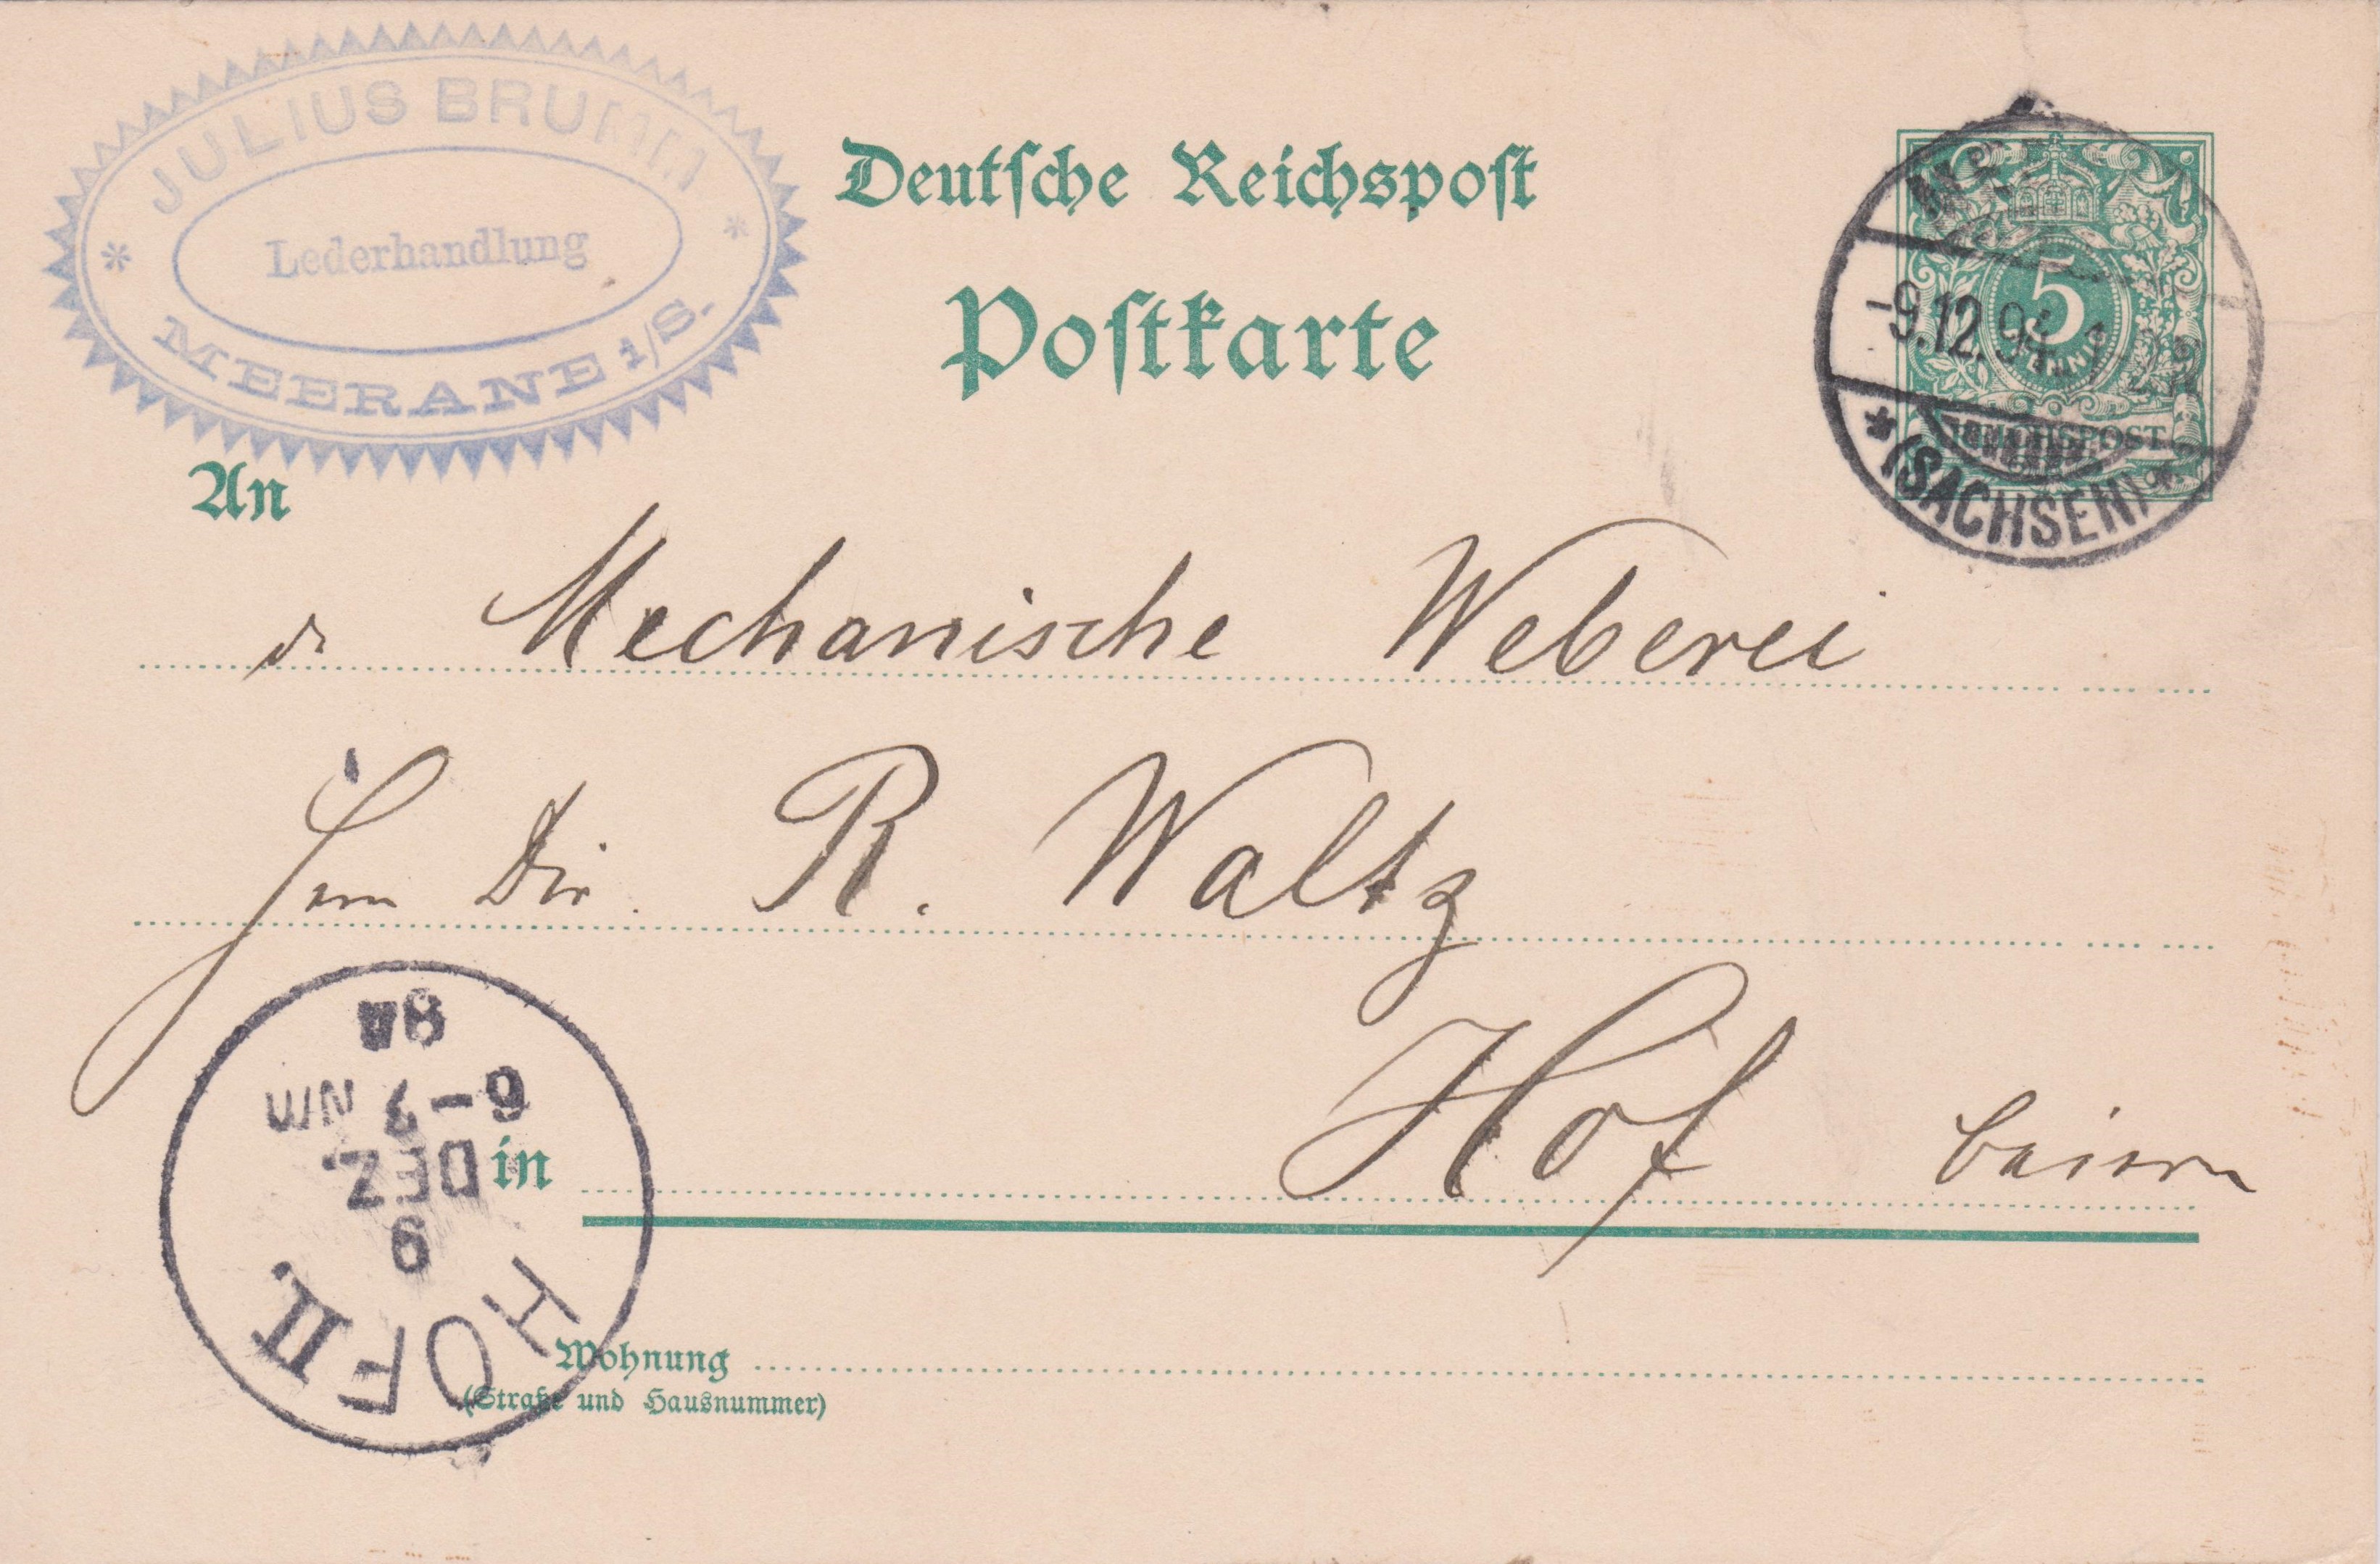 JULIUS BRUMM
Lederhandlung
MEERANE i/S.
Deutsche Reichspost
Postkarte
5
PFENNIG
REICHSPOST
-9.12.94
*(SACHSEN)*
An
d. Mechanische Weberei
Herrn Dir. R. Waltz
in Hof Baiern
94
6-7 NM
DEZ.
9
HOF II.
Wohnung
(Straße und Hausnummer)